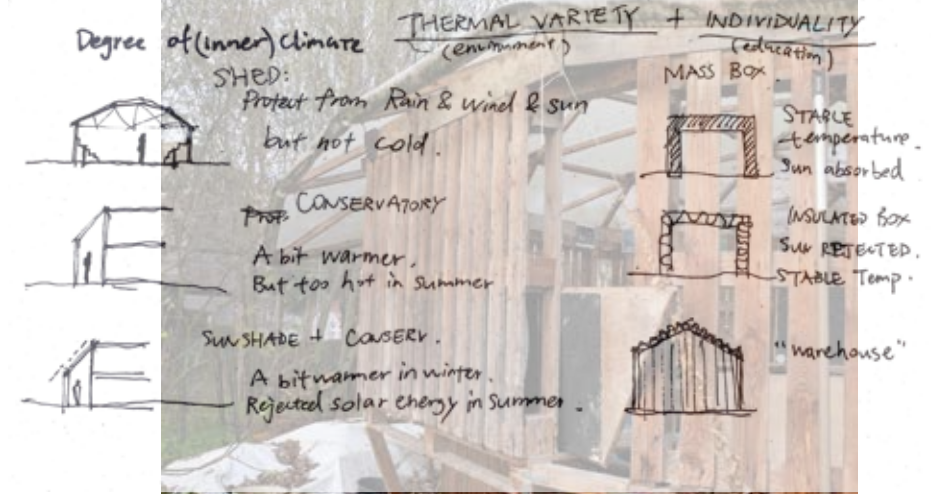 Degree of (inner) Climate
THERMAL VARIETY + INDIVIDUALITY
(environment)
(education)
SHED:
Protect from Rain & wind & sun
but not cold.
Prot. CONSERVATORY
A bit warmer.
But too hot in summer
SUNSHADE + CONSERV.
A bit warmer in winter.
Rejected solar energy in summer.
MASS BOX.
STABLE
temperature.
Sun absorbed
INSULATED BOX
Sun REJECTED.
STABLE Temp.
"warehouse"